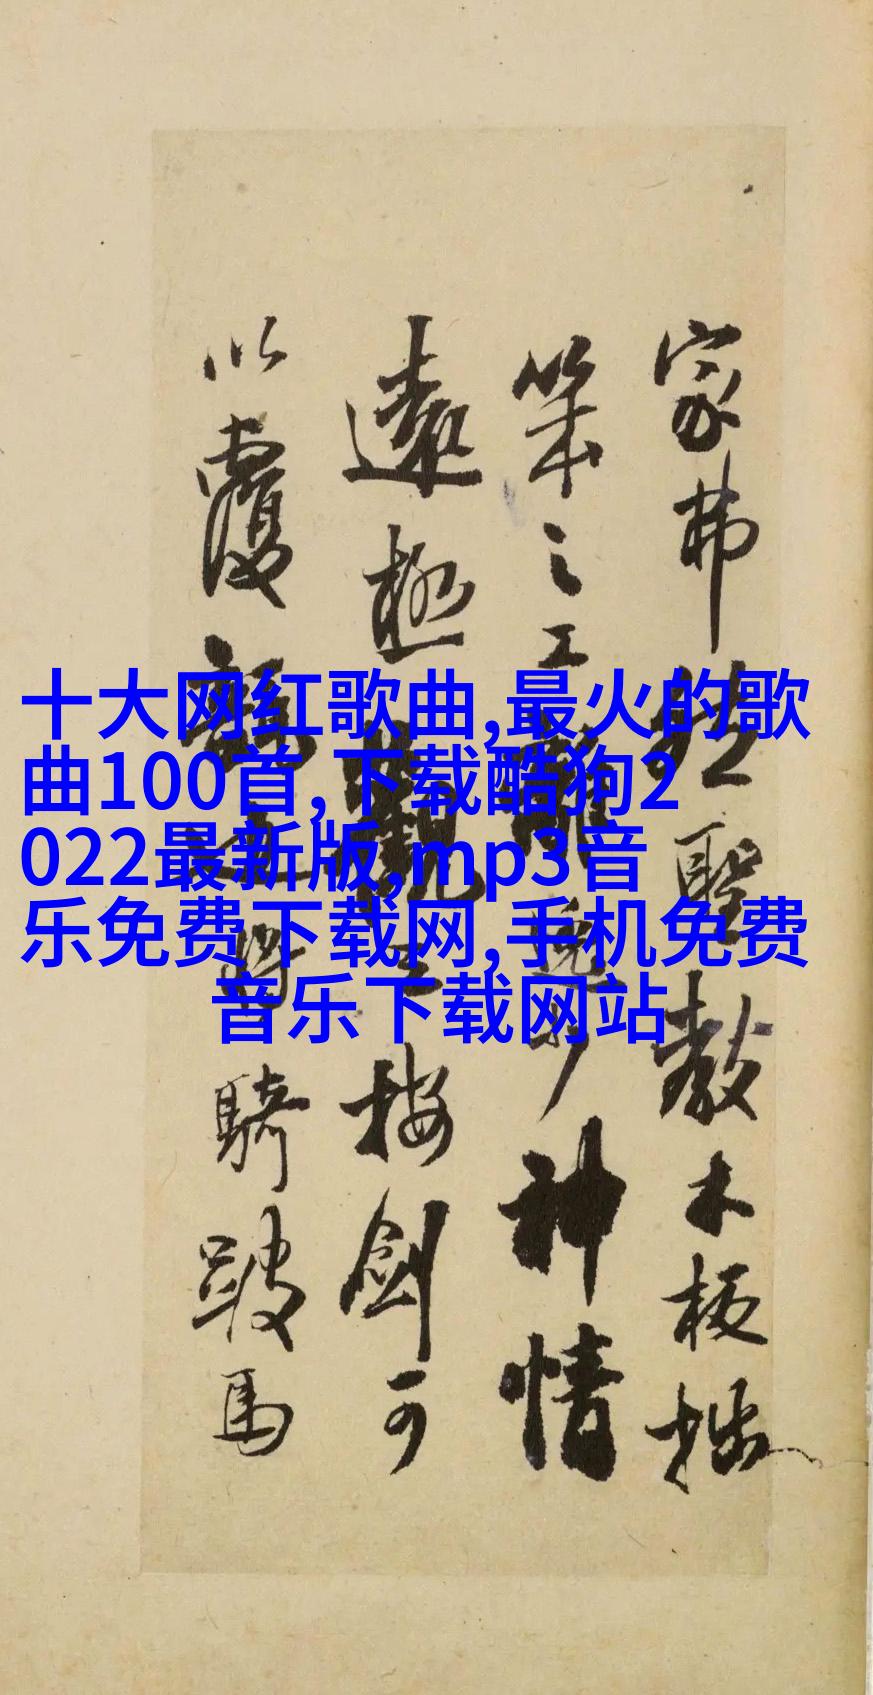 十大网红歌曲,最火的歌
曲100首,下载酷狗2
022最新版,mp3音
乐免费下载网,手机免费
音乐下载网站
家弗 聖教木板拙
筆之工 神情
遠極 按劍可
以覆 騎跛馬